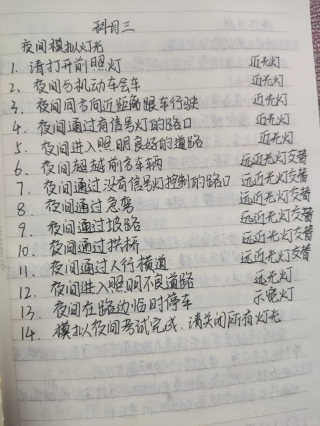 科目三
夜间模拟灯光
1. 请打开前照灯 近光灯
2. 夜间与机动车会车 近光灯
3. 夜间同方向近距离跟车行驶 近光灯
4. 夜间通过有信号灯的路口 近光灯
5. 夜间进入照明良好的道路 近光灯
6. 夜间超越前方车辆 远近光灯交替
7. 夜间通过没有信号灯控制的路口 远近光灯交替
8. 夜间通过急弯 远近光灯交替
9. 夜间通过坡路 远近光灯交替
10. 夜间通过拱桥 远近光灯交替
11. 夜间通过人行横道 远近光灯交替
12. 夜间进入照明不良道路 远光灯
13. 夜间在路边临时停车 示宽灯
14. 模拟夜间考试完成，请关闭所有灯光